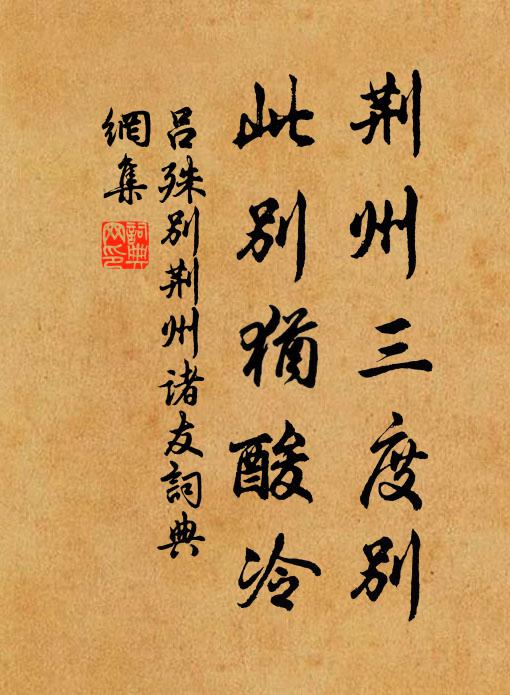 荆州三度别
此别猶酸冷
吕殊别荆州诸友詞典
網集
詞典
网印